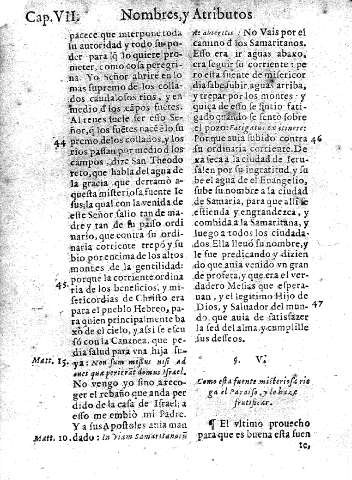 Cap.VII. Nombres, y Atributos
pacece que interpone toda
su autoridad y todo su po-
der para q̃ lo quiere pro-
meter, como cosa peregri-
na. Yo Señor abrirè en lo
mas supremo de los colla-
dos caudalosos rios, y en
medio d̃ los cãpos fuẽtes.
Al reues suele ser esso Se-
ñor, q̃ los fuẽtes nacẽ ẽ lo su
44 premo de los collados, y los
rios passan por medio d los
campos, dize San Theodo
reto, que habla del agua de
la gracia que derramò a-
questa misteriosa fuente Ie
sus, la qual con la venida de
este Señor salio tan de ma-
dre y tan de su passo ordi-
nario, que contra su ordi-
naria corriente trepò y su
bio por encima de los altos
montes de la gentilidad:
porque la corriente ordina
45. ria de los beneficios, y mi-
sericordias de Christo era
para el pueblo Hebreo, pa-
ra quien principalmente ba
xò de el cielo, y assi se escu
sò con la Cananea, que pe-
dia salud para vna hija su-
Matt. 15. ya: Non sum missus nisi ad
oues quæ perierãt domus Israel.
No vengo yo sino a reco-
ger el rebaño que anda per
dido de la casa de Israel; a
esso me embiò mi Padre.
Y a sus Apostoles auia man
Matt. 10. dado: In viam Samaritanorũ
ne abieritis: No Vais por el
camino d los Samaritanos.
Esso era ir aguas abaxo,
era seguir su corriente: pe
ro esta fuente de misericor
dia sabe subir aguas arriba,
y trepar por los montes: y
quiça de esso se sintio fati-
gado quando se sentò sobre
el pozo: Fatigatus ex itinere:
Porque auia subido contra 46
su ordinaria corriente. De
xa seca à la ciudad de Ieru-
salen por su ingratitud, y su
be el agua de el Euangelio,
sube su nombre a la ciudad
de Samaria, para que alli se
estienda y engrandezca, y
combida a la Samaritana, y
luego a todos los ciudada-
dos. Ella lleuò su nombre, y
le fue predicando y dizien
do que auia venido vn gran
de profeta, y que era el ver-
dadero Mesias que espera-
uan, y el legitimo Hijo de
Dios, y Saluador del mun- 47
do, que auia de satisfazer
la sed del alma, y cumplille
sus desseos.
§. V.
Como esta fuente misteriosa rie
ga el Paraiso, y lo haze
frutificar.
¶ El vltimo prouecho
para que es buena esta fuen
te,